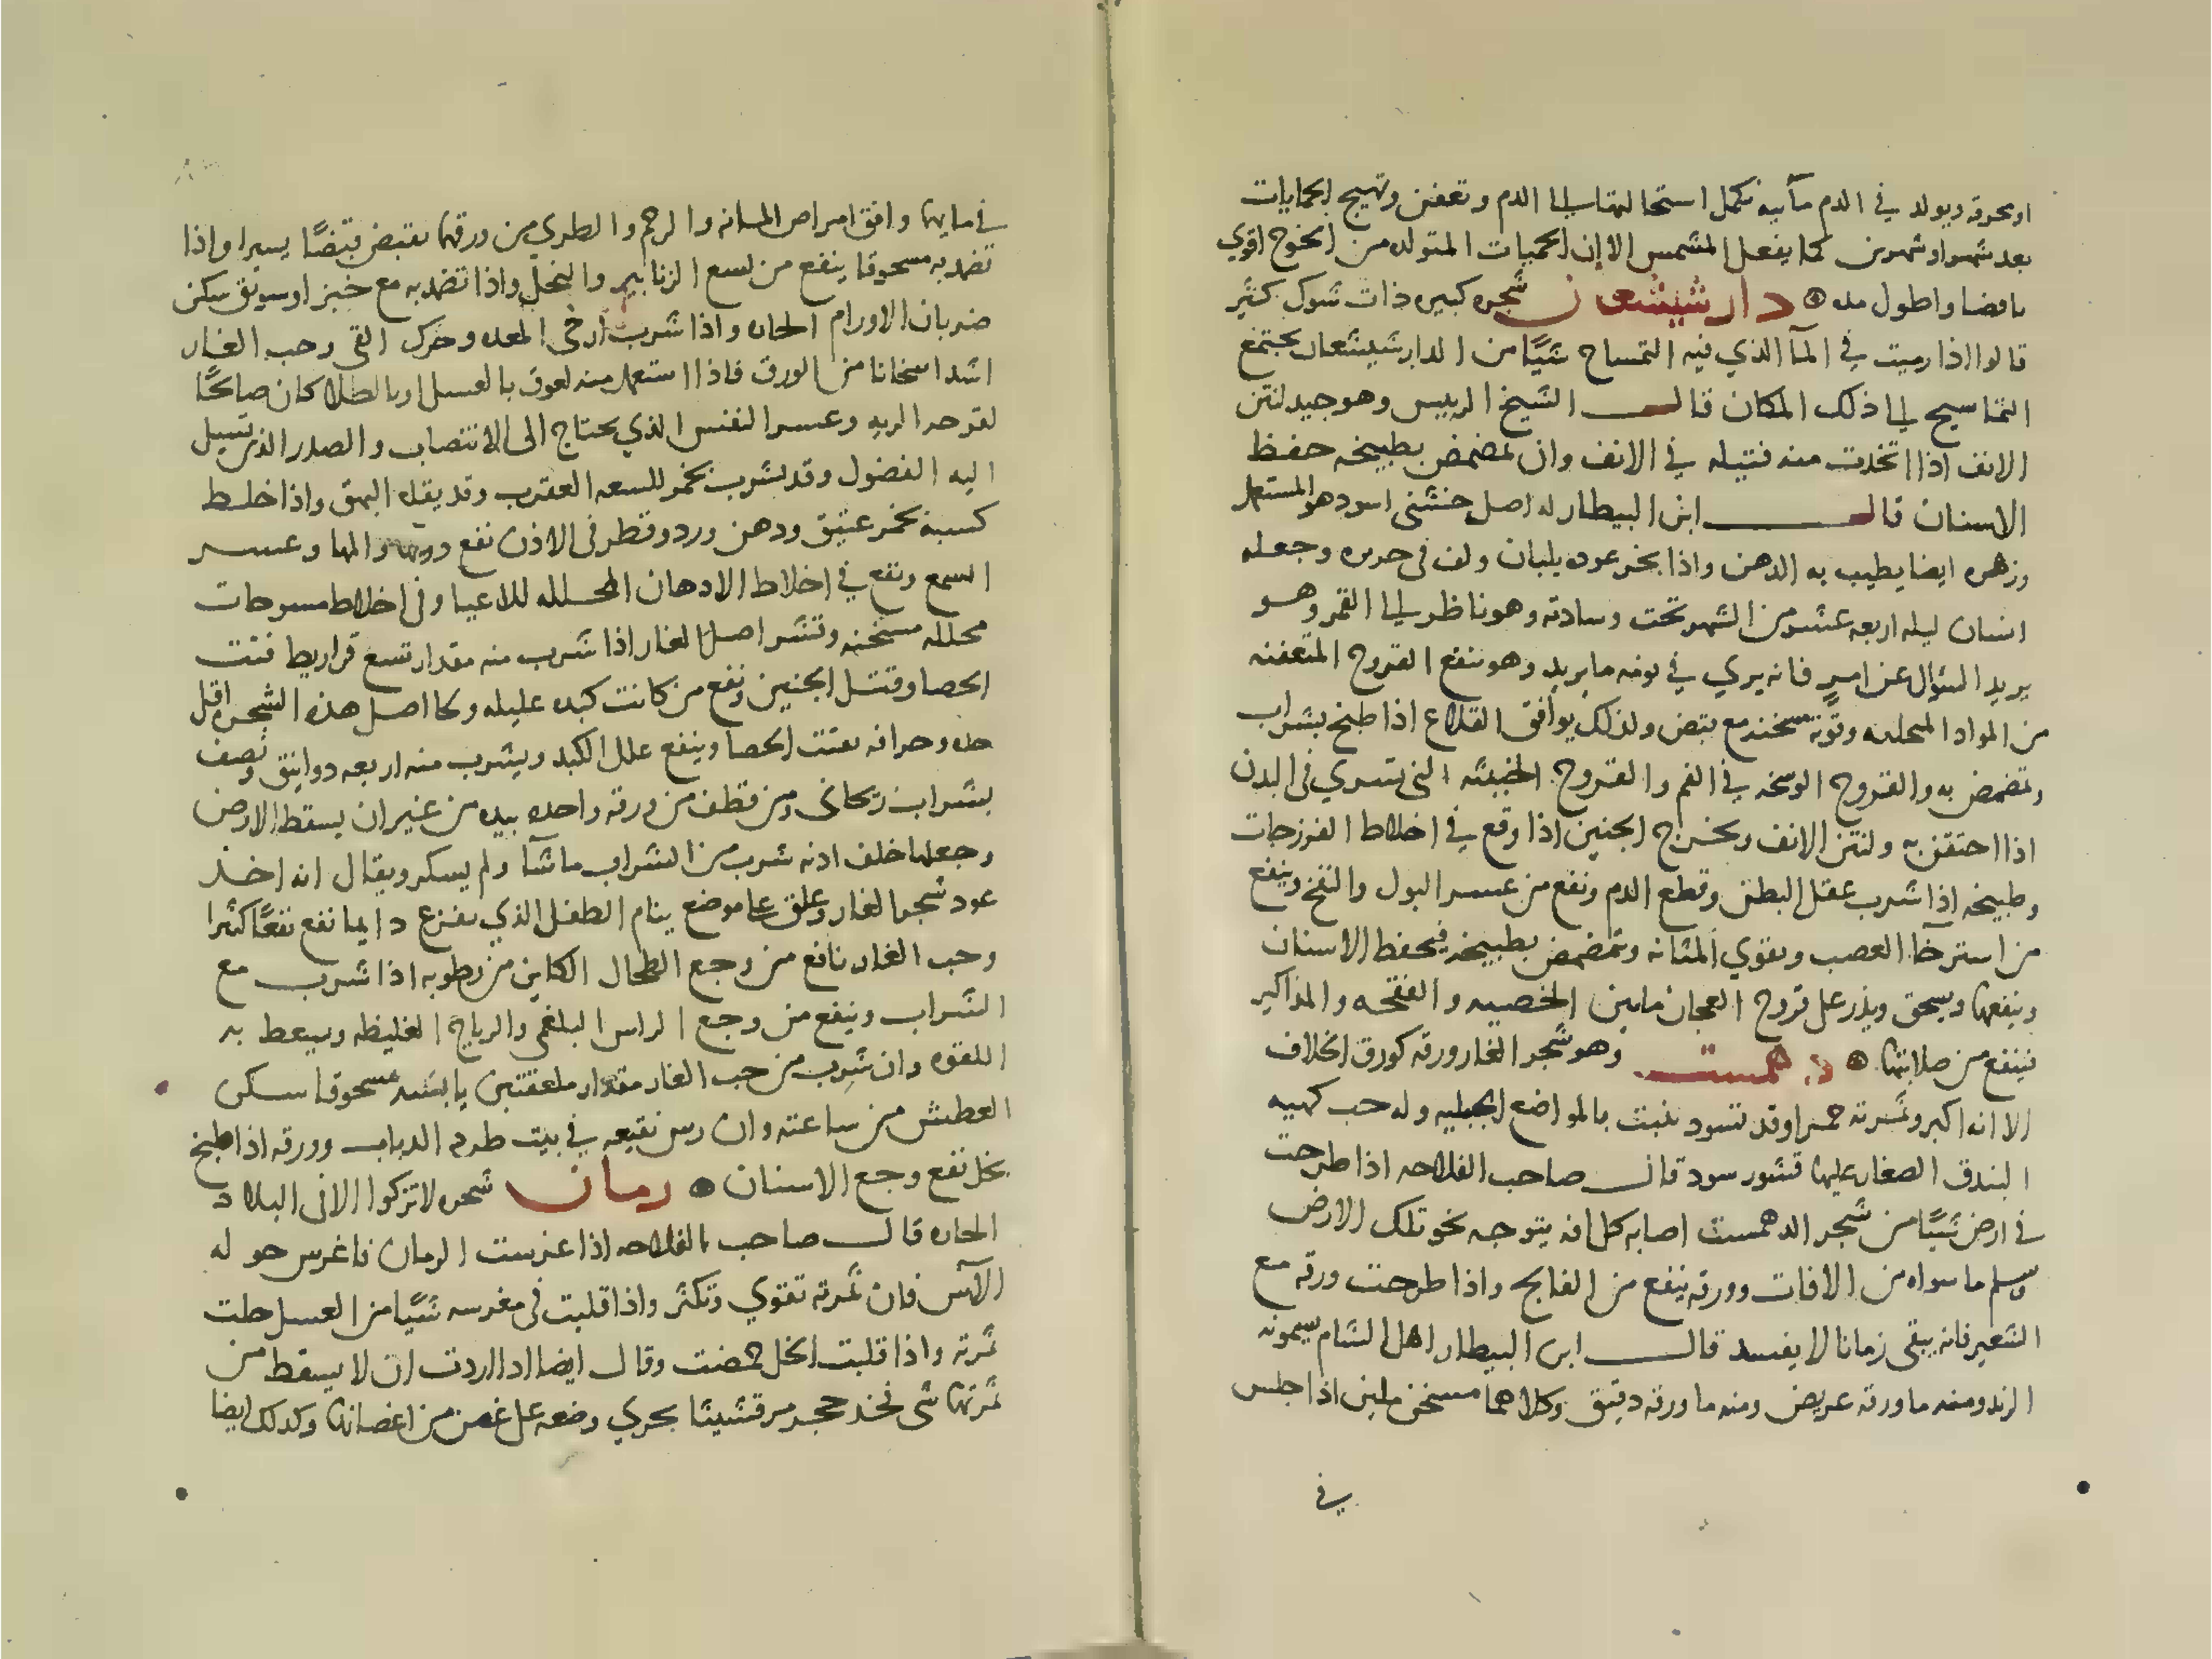 او بحروقه ويولد في الدم مآئيه تكمل استحالتها الى الدم وتعفن وتهيج الحمايات
بعد شهر او شهرين كما يفعل المشمش الا ان الحميات المتولده من الخوخ اقوي
واطول مده دارشيشعان شجره كبيره ذات شوك كثير
قالوا اذا رميت في المآ الذي فيه التمساح شيًا من الدارشيشعان يجتمع
التماسيح الى ذلك المكان قال الشيخ الرييس وهو جيد لنتن
الانف اذا اتخدت منه فتيله في الانف وان تمضمض بطبيخه حفظ
الاسنان قال ابن البيطار له اصل خشني اسود هو المستعمل
وزهره ايضا يطيب به الدهن واذا بخر عوده بلبان ولف في حريره وجعله
انسان ليله اربعه عشر من الشهر تحت وسادته وهو ناظر الى القمر وهو
يريد السوال عن امرٍ فانه يري في نومه ما يريد وهو ينفع القروح المتعفنه
من المواد المتحلبه وقوته مسخنه مع قبض ولذلك يوافق القلاع اذا طبخ بشراب
وتمضمض به والقروح الوسخه في الفم والقروح الخبيثه التي تسري في البدن
اذا احتقن به ولنتن الانف ويخرج الجنين اذا وقع في اخلاط الفرزجات
وطبيخه اذا شرب عقل البطن وقطع الدم ونفع من عسر البول والنفخ وينفع
من استرخآ العصب ويقوي المثانه وتمضمض بطبيخه فيحفظ الاسنان
وينفعها ويسحق ويذر على قروح العجان مابين الخصيه والفقحه والمذاكير
فينفع من صلابتها دهمست وهو شجر الغار ورقه كورق الخلاف
الا انه اكبر وثمرته حمرا وقد تسود ينبت بالمواضع الجبليه وله حب كهيه
البندق الصغار عليها قشور سود قال صاحب الفلاحه اذا طرحت
في ارض شيًا من شجر الدهمست اصابه كل افه يتوجه نحو تلك الارض
وسلم ما سواه من الافات وورقه ينفع من الفالج واذا طرحت ورقه مع
الشعير فانه يبقى زمانا لا يفسد قال ابن البيطار اهل الشام يسمونه
الرند ومنه ما ورقه عريض ومنه ما ورقه دقيق وكلاهما مسخن ملين اذا جلس
في
في مايها وافق امراض المثانه والرحم والطري من ورقها يقبض قبضًا يسيرا واذا
تضمد به مسحوقا ينفع من لسع الزنابير والنحل واذا تضمد به مع خبز او سويق سكن
ضربان الاورام الحاره واذا شرب ارخى المعده وحرك القي وحب الغار
اشد اسخانا من الورق فاذا استعمل منه لعوق بالعسل او بالطلا كان صالحًا
لقرحه الريه وعسر النفس الذي يحتاج الى الانتصاب والصدر الذي تسيل
اليه الفضول وقد يشرب بخمر للسعه العقرب وقد يقلع البهق واذا خلط
كسبه بخمر عتيق ودهن ورد وقطر في الاذن نفع دويها والمها وعسر
السمع ونفع في اخلاط الادهان المحلله للاعيا وفي اخلاط مسوحات
محلله مسخنه وقشر اصل الغار اذا شرب منه مقدار تسع قراريط فتت
الحصا وقتل الجنين ونفع من كانت كبده عليله ولحا اصل هذه الشجره اقل
حده وحرافه يفتت الحصا وينفع علل الكبد ويشرب منه اربعه دوانيق ونصف
بشراب ريحانى ومن قطف من ورقه واحده بيده من غير ان يسقط الارض
وجعلها خلف اذنه شرب من الشراب ما شآ ولم يسكر ويقال انه اخذ
عود شجر الغار وعلق على موضع ينام الطفل الذي يفزع دايما نفع نفعًا كثيرا
وحب الغار نافع من وجع الطحال الكاين من رطوبه اذا شرب مع
الشراب وينفع من وجع الراس البلغمي والرياح الغليظه ويسعط به
اللقوه وان شرب من حب الغار مقدار ملعقتين يابسه مسحوقا سكن
العطش من ساعته وان رش نقيعه في بيت طرد الدباب وورقه اذا طبخ
بخل نفع وجع الاسنان رمان شجره لا تزكوا الا في البلاد
الحاره قال صاحب الفلاحه اذا غرست الرمان فاغرس حوله
الآس فان ثمرته تقوي وتكثر واذا قلبت في مغرسه شيًا من العسل حلت
ثمرته واذا قلبت الخل حمضت وقال ايضا اذا اردت ان لا يسقط من
ثمرتها شى فخذ حجر مرقشيثا بحري وضعه على غصن من اغصانها وكذلك ايضا